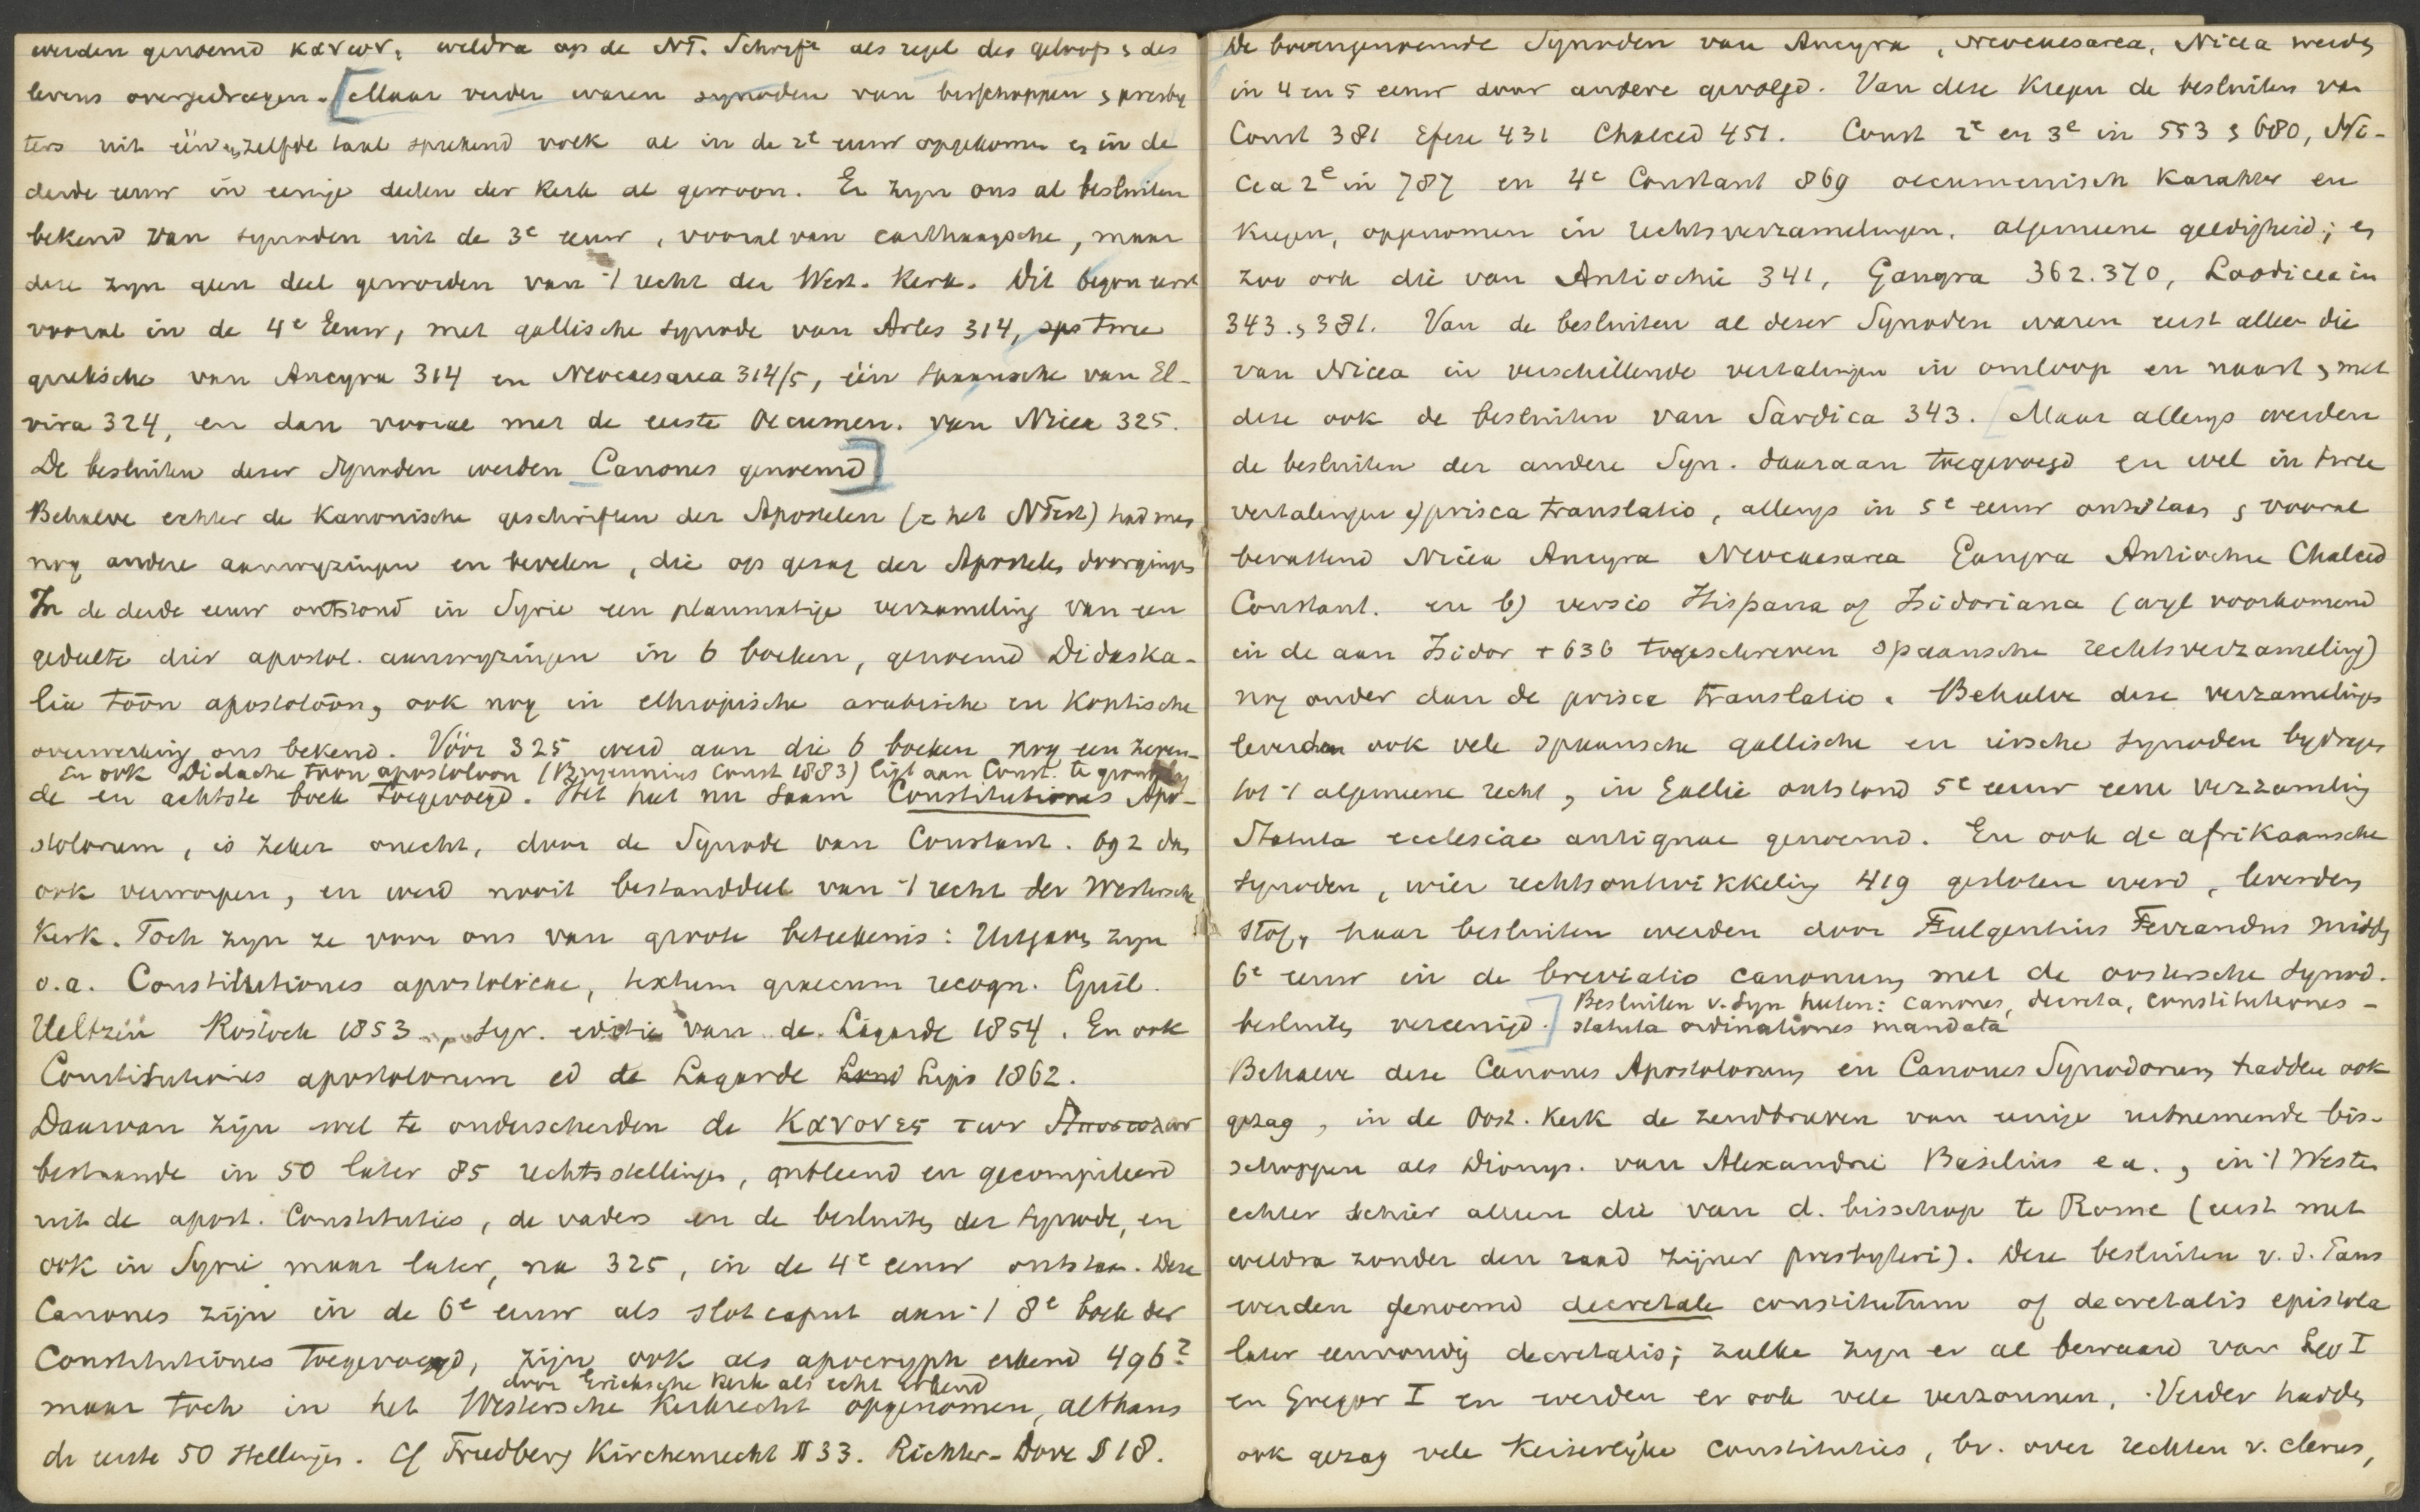 werden genoemd κανων, weldra op de NT. Schrift als regel des geloofs & des
levens overgedragen. [Maar verder waren synoden van bisschoppen & presby
ters uit één en zelfde taal sprekend volk al in de 2e eeuw opgekomen en in de
derde eeuw in eenige deelen der Kerk al gewoon. Er zyn ons al besluiten
bekend van synoden uit de 3e eeuw, vooral van carthaagsche, maar
deze zyn geen deel geworden van 't recht der West. Kerk. Dit begon eerst
vooral in de 4e Eeuw, met gallische synode van Arles 314, ops twee
grieksche van Ancyra 314 en Neocaesarea 314/5, één spaansche van El-
vira 324, en dan vooral met de eerste Oecumen. van Nicea 325.
De besluiten dezer Synoden werden Canones genoemd]
Behalve echter de Kanonische geschriften der Apostelen (= het NTest) had men
nog andere aanwyzingen en bevelen, die op gezag der Apostelen doorgingen
In de derde eeuw ontstond in Syrie een planmatige verzameling van een
gedeelte dier apostol. aanwyzingen in 6 boeken, genoemd Didaska-
lia toōn apostoloōn, ook nog in ethiopische arabische en Koptische
overwerking ons bekend. Vóór 325 werd aan die 6 boeken nog een zeven-
En ook Didache toon apostoloon (Bryennius Const 1883) ligt aan Const. te grondslag
de en achtste boek toegevoegd. Het heet nu saam Constitutiones Apo-
stolorum, is zeker onecht, door de Synode van Constant. 692 dan
ook verworpen, en werd nooit bestanddeel van 't recht der Westersche
Kerk. Toch zyn ze voor ons van groote beteekenis: Uitgaven zyn
o.a. Constitutiones apostolicae, textum graecum recogn. Guil.
Ueltzen Rostock 1853, syr. editie van de Lagarde 1854. En ook
Constitutiones apostolorum ed de Lagarde Lond Lips 1862.
Daarvan zijn wel te onderscheiden de Κανονες των Αποστολων
bestaande in 50 later 85 rechtsstellingen, ontleend en gecompileerd
uit de apost. Constituties, de vaders en de besluiten der synode, en
ook in Syrie maar later, na 325, in de 4e eeuw ontstaan. Deze
Canones zijn in de 6e eeuw als slotcaput aan 't 8e boek der
Constitutiones toegevoegd, zijn ook als apocryph erkend 496?
door Grieksche Kerk als echt erkend
maar toch in het Westersche Kerkrecht opgenomen, althans
de eerste 50 stellingen. Cf Friedberg Kirchenrecht § 33. Richter-Dove § 18.
De bovengenoemde Synoden van Ancyra, Neocaesarea, Nicea werden
in 4 en 5 eeuw door andere gevolgd. Van deze kregen de besluiten van
Const 381 Efeze 431 Chalced 451. Const 2e en 3e in 553 & 680, Ni-
cea 2e in 787 en 4e Constant 869 oecumenisch karakter en
kregen, opgenomen in rechtsverzamelingen, algemeene geldigheid; en
zoo ook die van Antiochie 341, Gangra 362.370, Laodicea in
343. & 381. Van de besluiten al dezer Synoden waren eerst alleen die
van Nicea in verschillende vertalingen in omloop en naast & met
deze ook de besluiten van Sardica 343. [Maar allengs werden
de besluiten der andere Syn. daaraan toegevoegd en wel in twee
vertalingen a) prisca translatio, allengs in 5e eeuw ontstaan & vooral
bevattend Nicea Ancyra Neocaesarea Gangra Antiochie Chalced
Constant. en b) versio Hispana of Isidoriana (wyl voorkomend
in de aan Isidor + 636 toegeschreven spaansche rechtsverzameling)
nog ouder dan de prisca translatio. Behalve deze verzamelingen
leverden ook vele spaansche gallische en iersche synoden bydragen
tot 't algemeene recht, in Gallie ontstond 5e eeuw eene verzameling
Statuta ecclesiae antiquae genoemd. En ook de afrikaansche
synoden, wier rechtsontwikkeling 419 gesloten werd, leverden
stof, haar besluiten werden door Fulgentius Ferrandus midden
6e eeuw in de breviatio canonum, met de oostersche synod.
Besluiten v. Syn heten: canones, decreta, constitutiones -
besluiten vereenigd.] statuta ordinationes mandata
Behalve deze Canones Apostolorum en Canones Synodorum hadden ook
gezag, in de Oost. Kerk de zendbrieven van eenige uitnemende bis-
schoppen als Dionys. van Alexandrie Basilius e.a., in 't Westen
echter schier alleen die van d. bisschop te Rome (eerst met
weldra zonder den raad zijner presbyteri). Deze besluiten v. d. Paus
werden genoemd decretale constitutum of decretalis epistola
later eenvoudig decretalis; zulke zyn er al bewaard van Leo I
en Gregor I en werden er ook vele verzonnen. Verder hadden
ook gezag vele Keiserlijke constituties, bv. over rechten v. clerus,